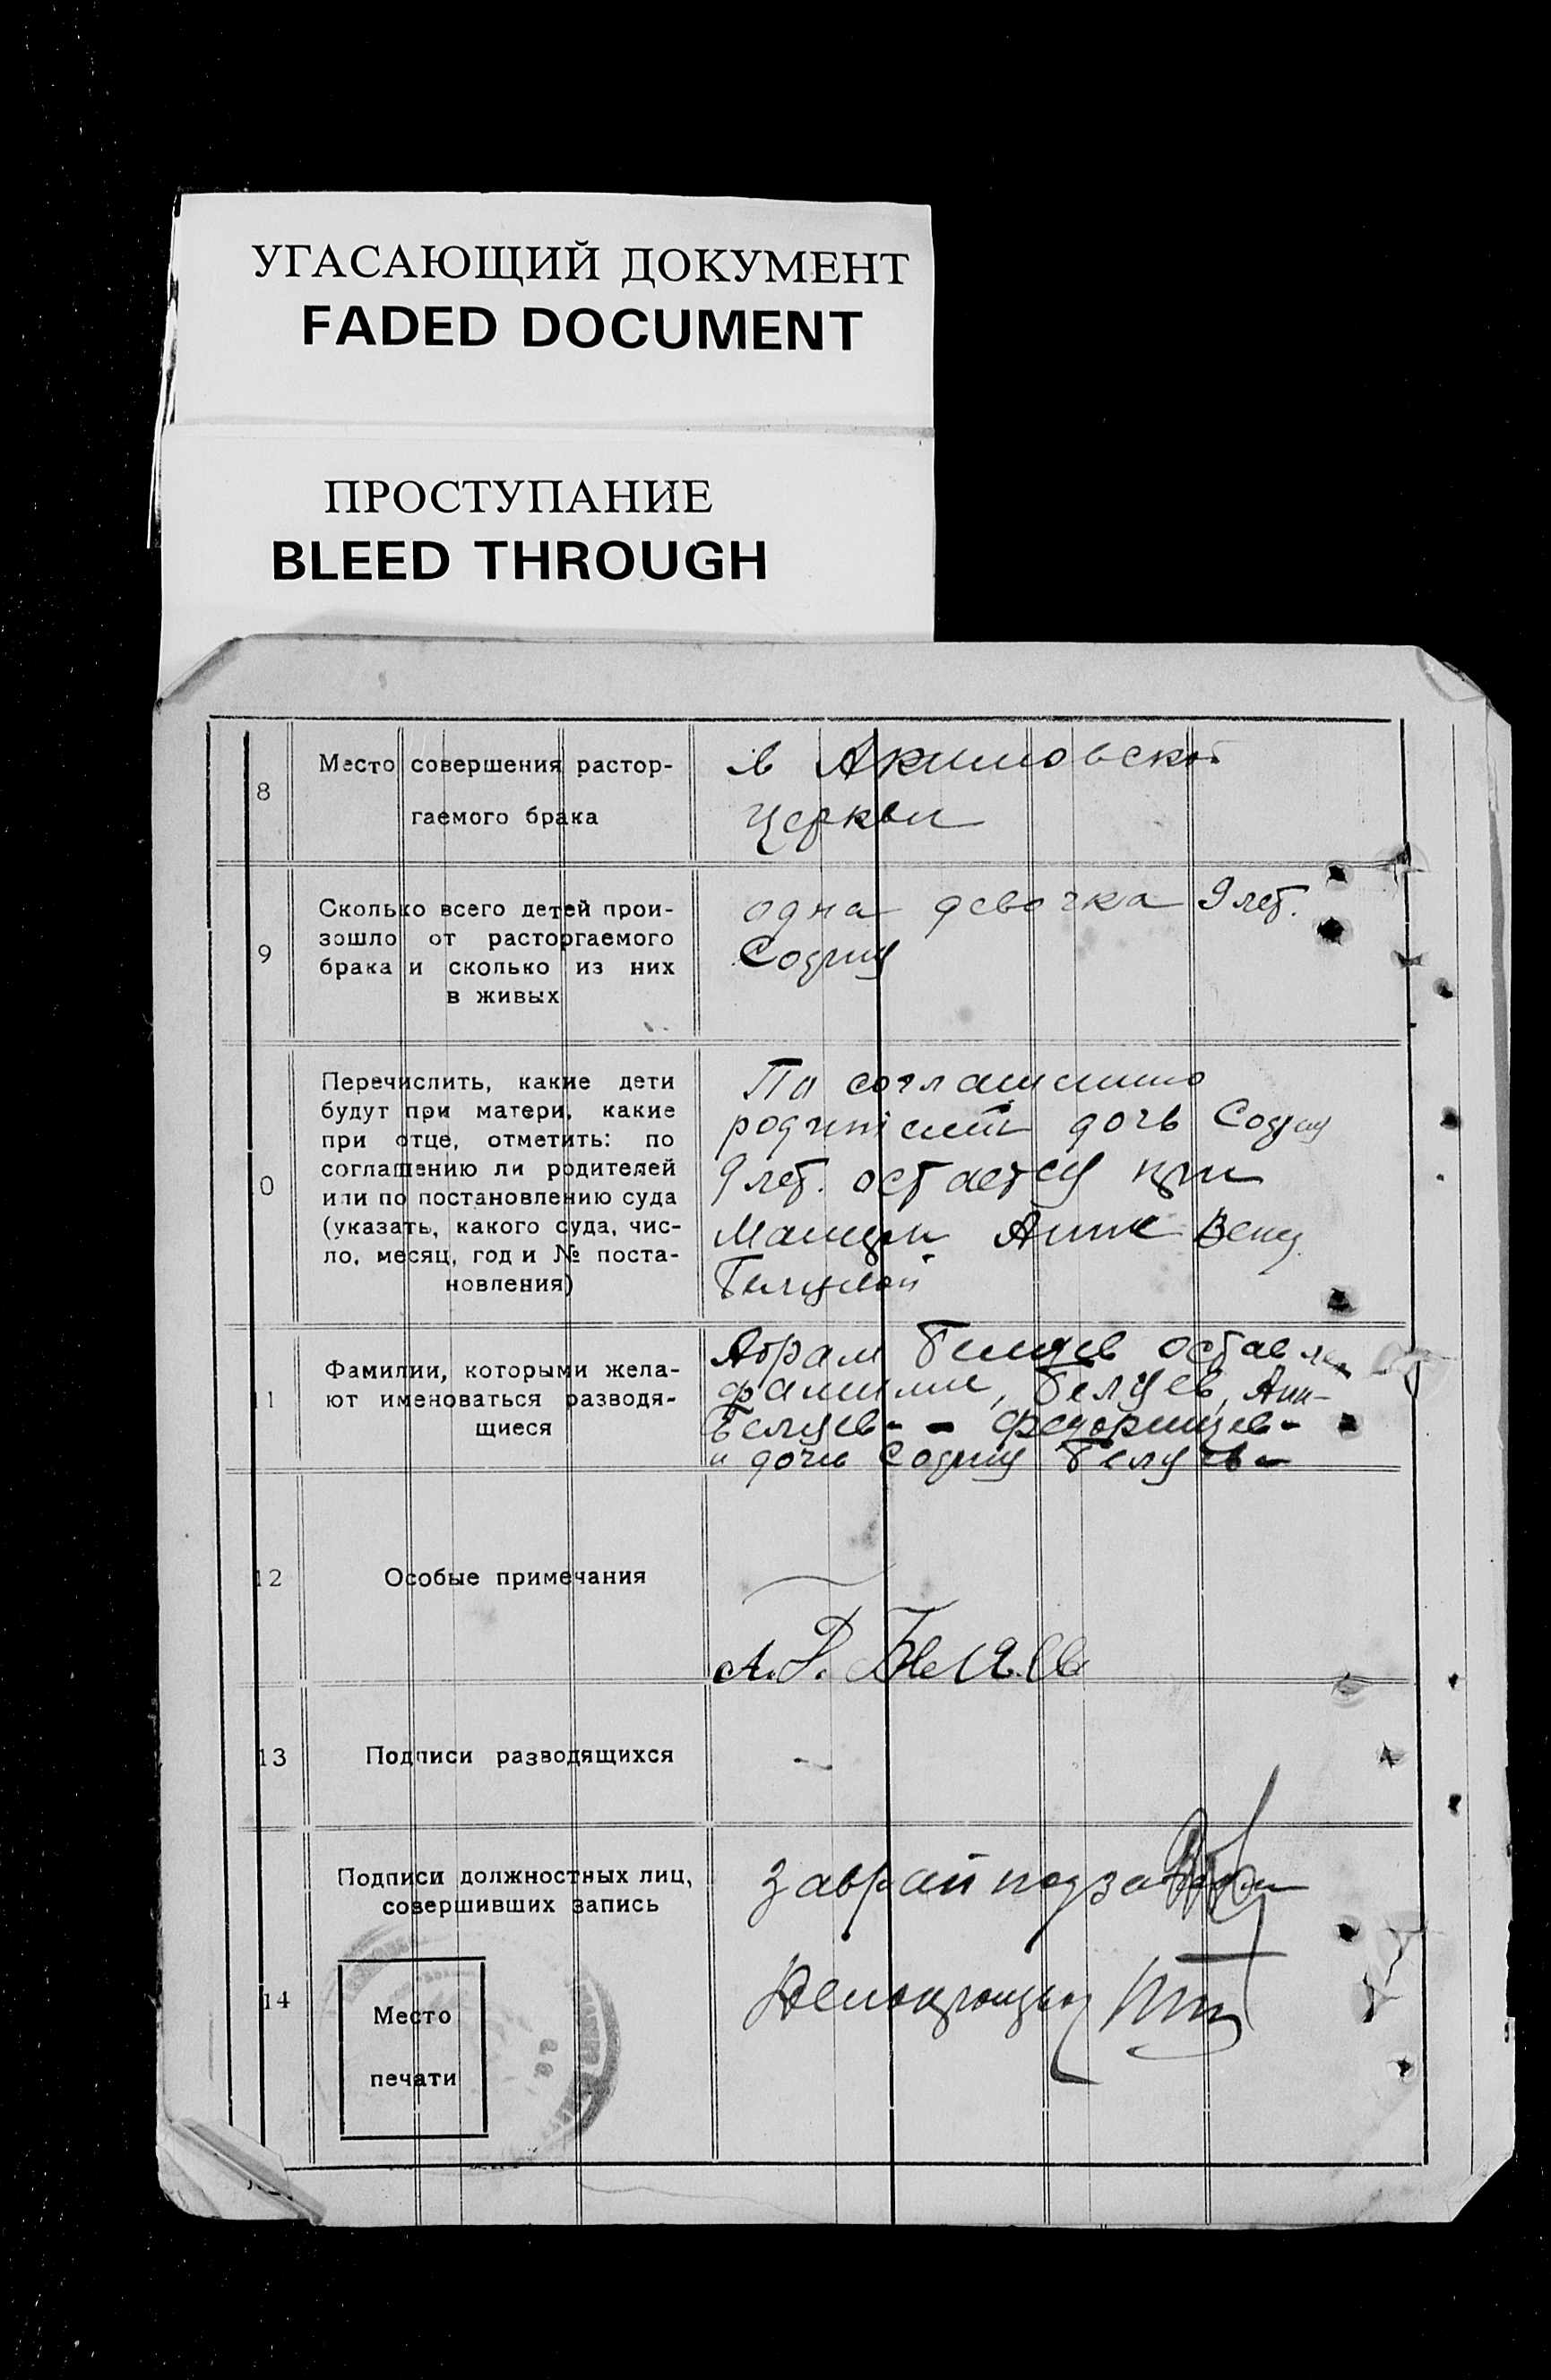 УГАСАЮЩИЙ ДОКУМЕНТ
FADED DOCUMENT
ПРОСТУПАНИЕ
BLEED THROUGH
8
Место совершения растор-
гаемого брака
в Акимовской
церкви
9
Сколько всего детей прои-
зошло от расторгаемого
брака и сколько из них
в живых
одна девочка 9 лет.
София
0
Перечислить, какие дети
будут при матери, какие
при отце, отметить: по
соглашению ли родителей
или по постановлению суда
(указать, какого суда, чис-
ло, месяц, год и № поста-
новления)
По соглашению
родителей дочь София
9 лет. остается при
Матери Анне
11
Фамилии, которыми жела-
ют именоваться разводя-
щиеся
Абрам
фамилии, Беляев,
и дочь София Беляев
12
Особые примечания
13
Подписи разводящихся
14
Подписи должностных лиц,
совершивших запись
Место
печати
Делопроизвод